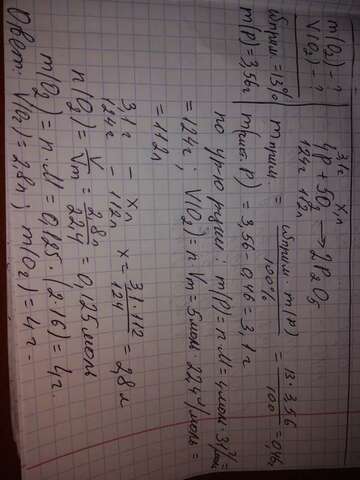 m(O₂) - ?
V(O₂) - ?
ωприм. = 13%
m(P) = 3,56г
3,1г xл
4P + 5O₂ → 2P₂O₅
124г 112л
mприм. = ωприм. · m(P) / 100% = 13 · 3,56 / 100 = 0,46
m(чист. P) = 3,56 - 0,46 = 3,1 г
по ур-ю : m(P) = n·M = 4моль · 31 г/моль =
= 124г; V(O₂) = n · Vm = 5моль · 22,4 л/моль =
= 112л
3,1г - xл
124г - 112л x = 3,1 · 112 / 124 = 2,8 л
n(O₂) = V / Vm = 2,8л / 22,4 = 0,125моль
m(O₂) = n · M = 0,125 · (2·16) = 4г.
Ответ: V(O₂) = 2,8л; m(O₂) = 4г.